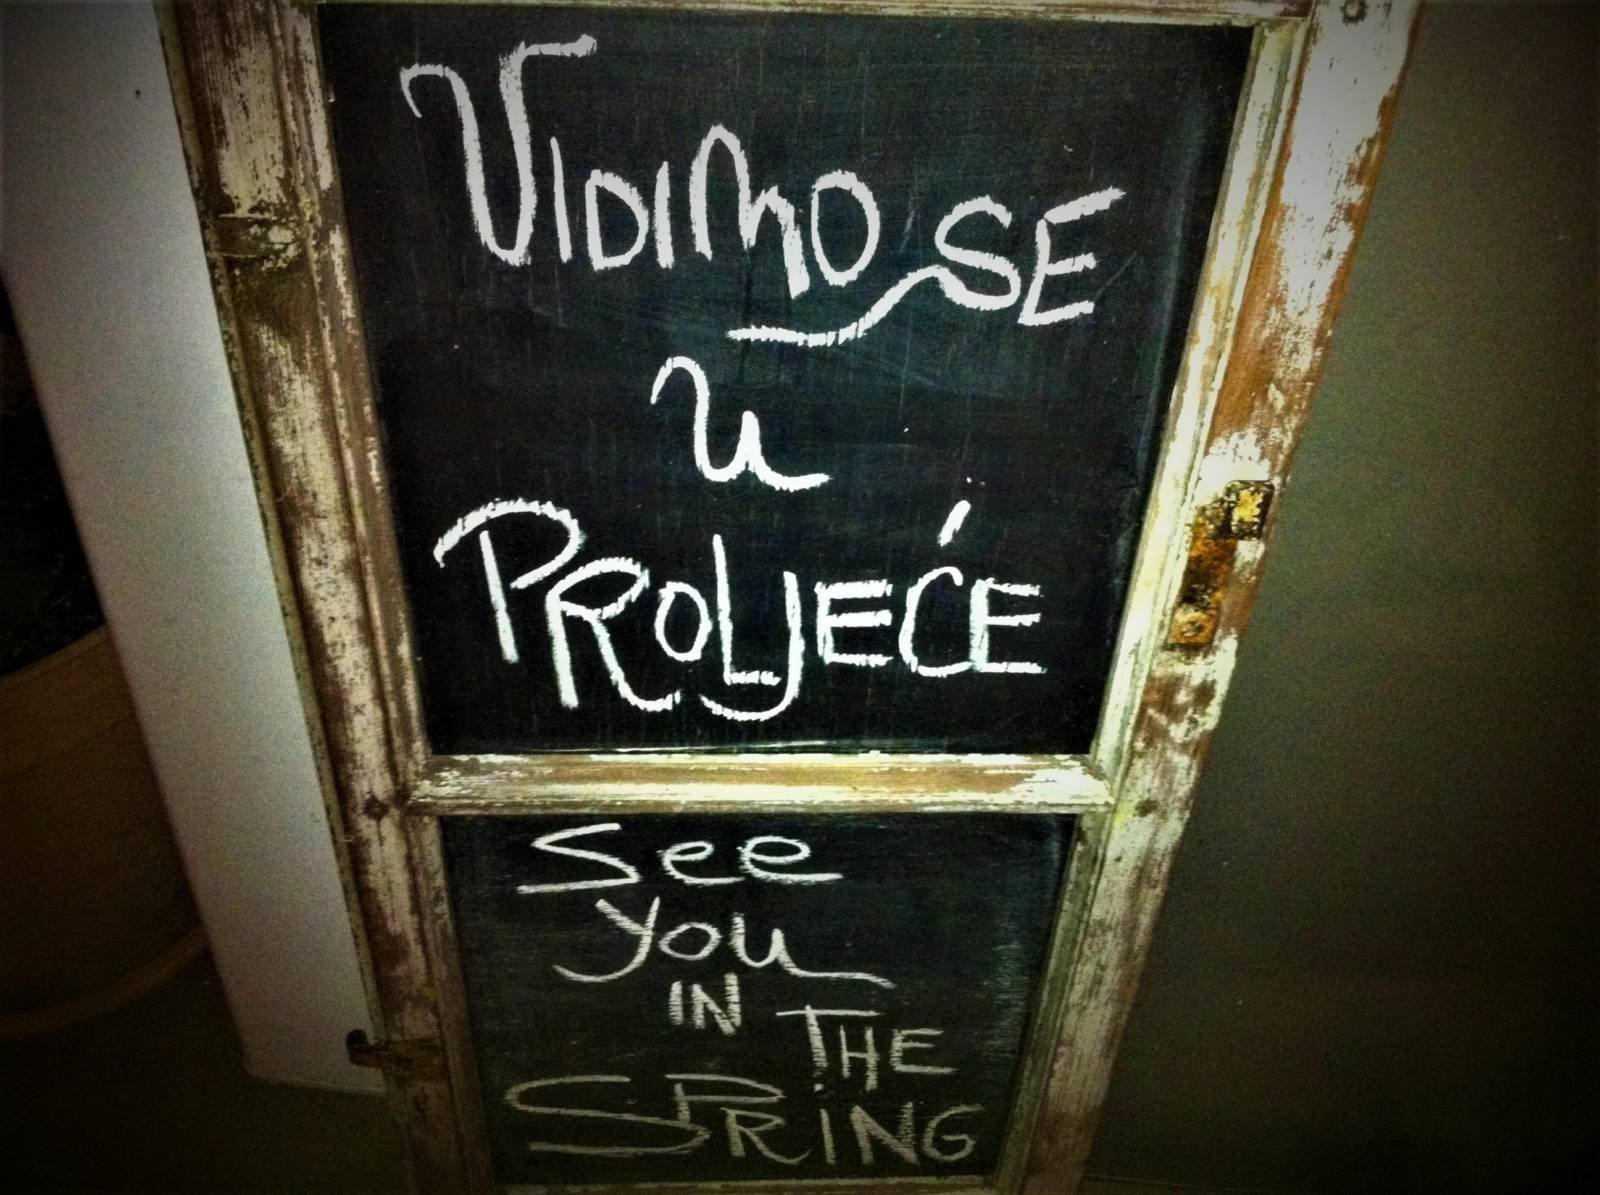 VIDIMO SE
u
PROLJEĆE
See
you
IN
THE
SPRING